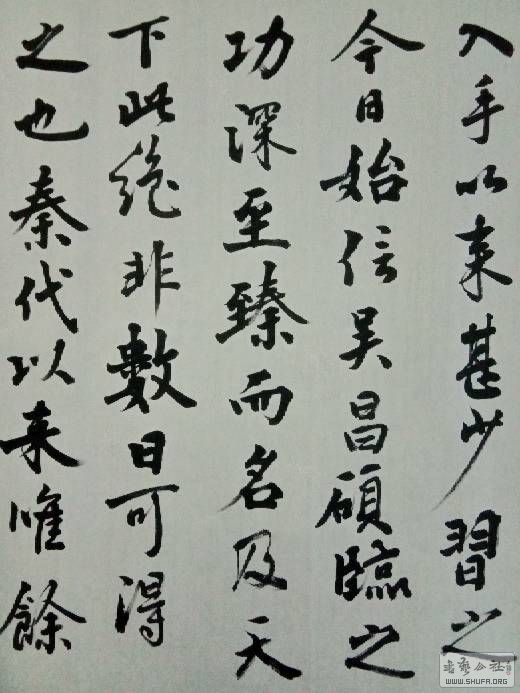 入手以来甚少習之
今日始信吴昌碩臨之
功深至臻而名及天
下此絶非數日可得
之也秦代以来唯餘
書藝公社
WWW.SHUFA.ORG